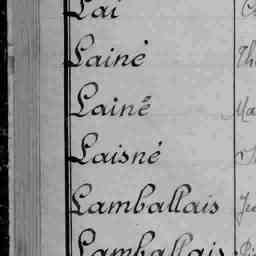 Lai
Lainé
Lainé
Laisné
Lamballais
Lamballais